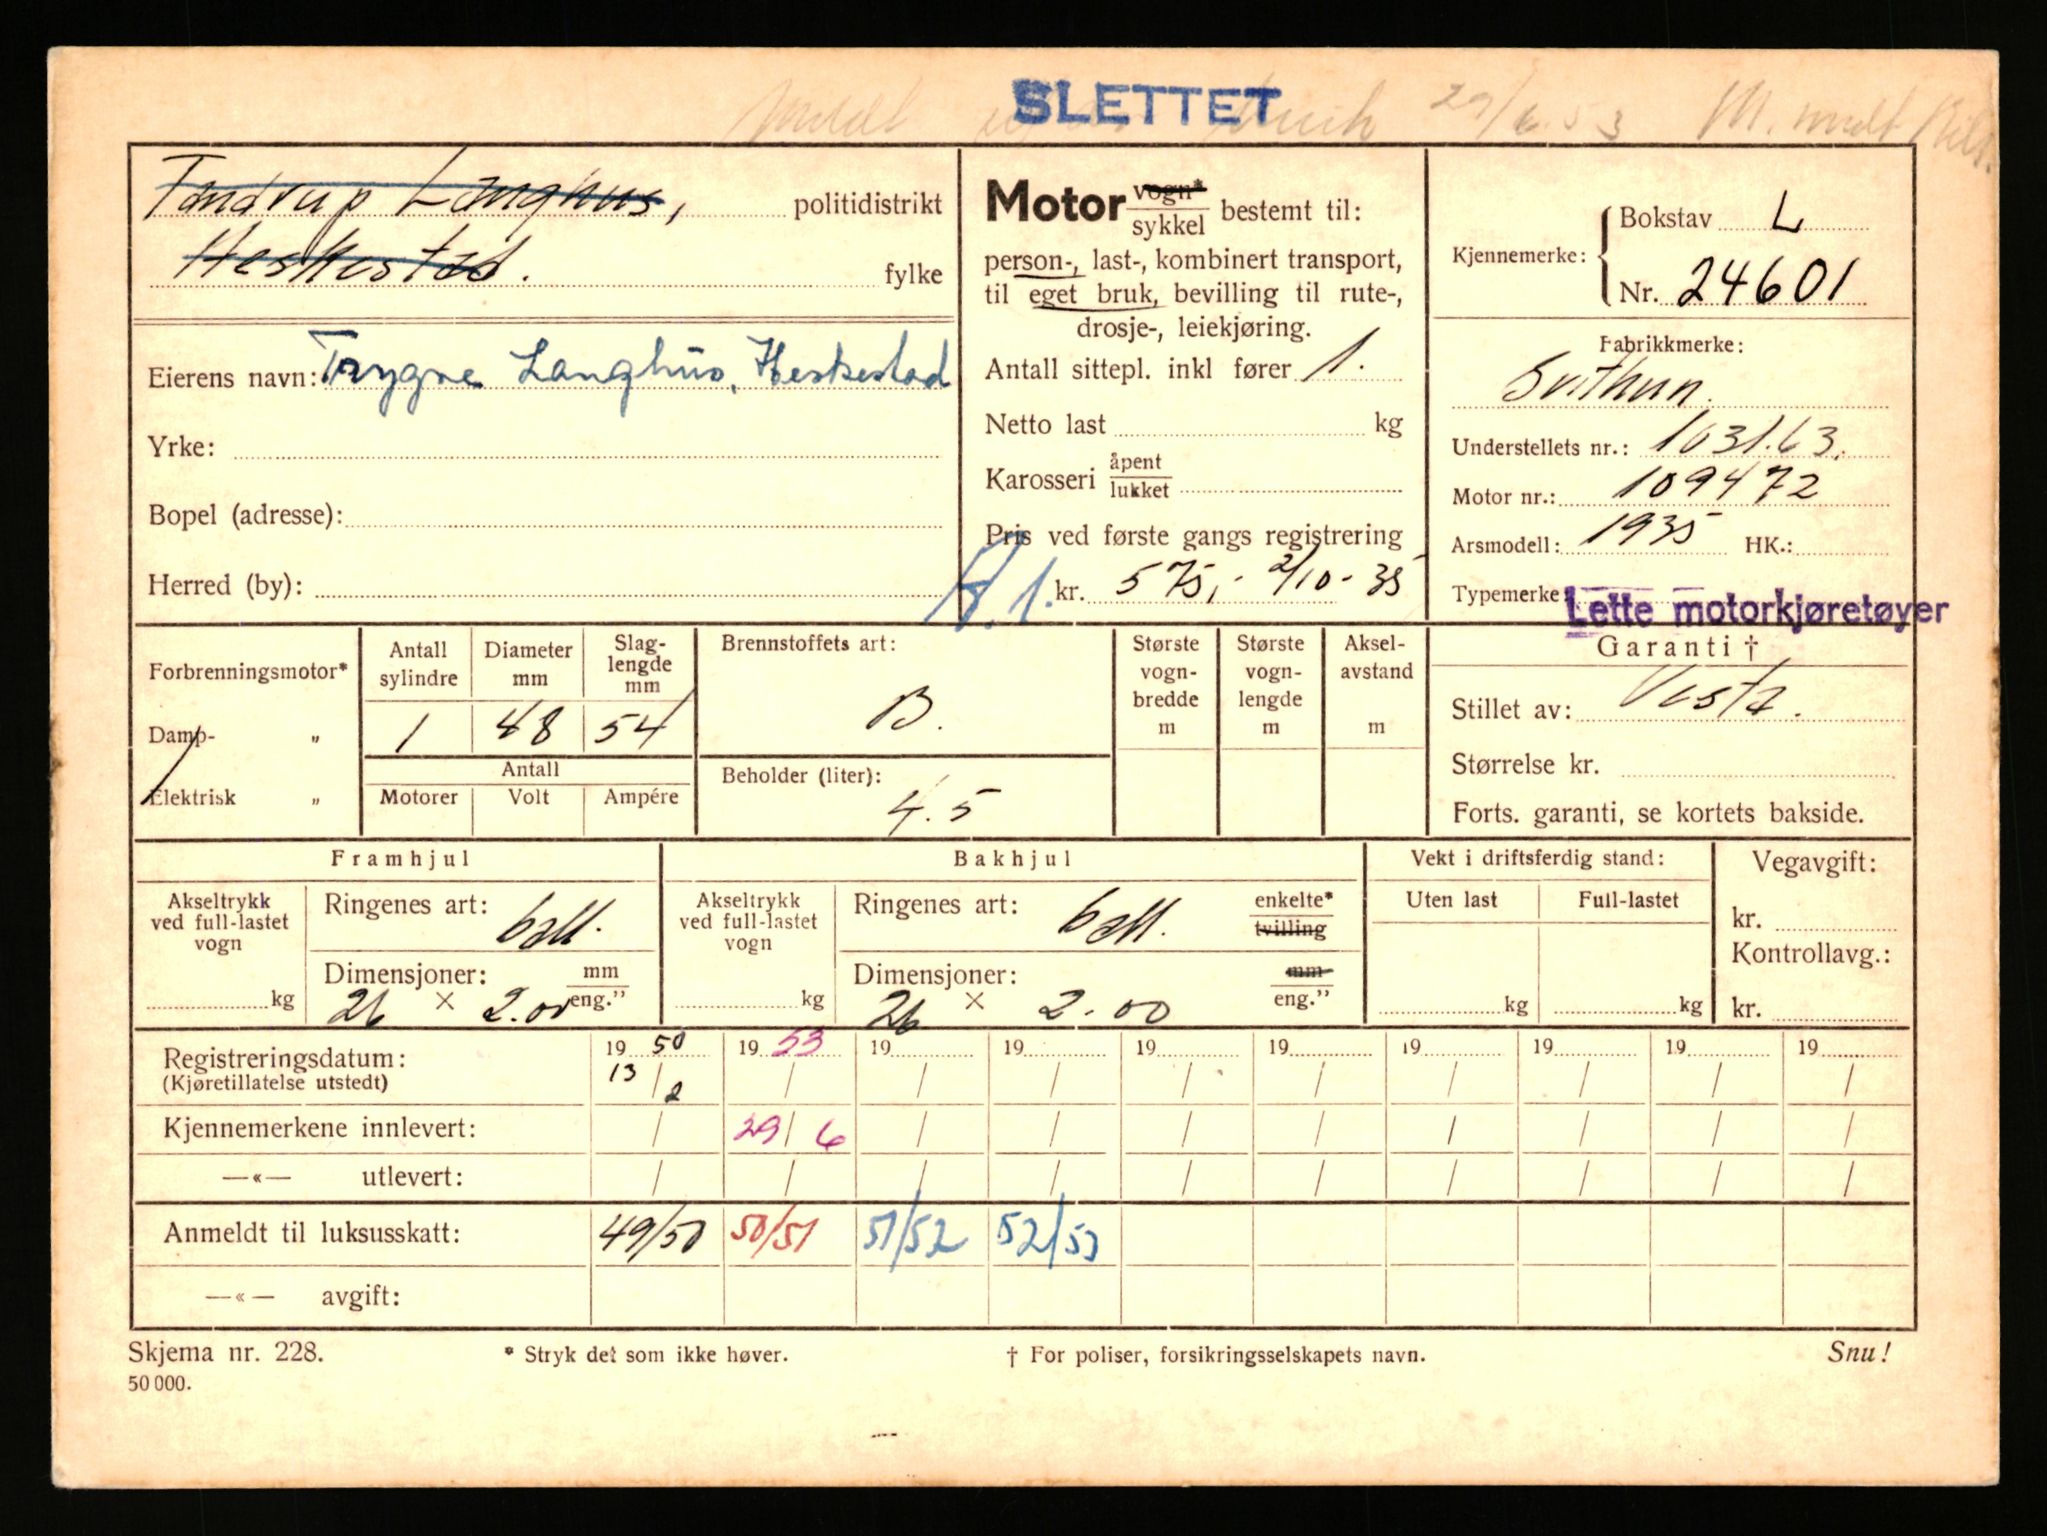 SLETTET
29/6.53 M.
Tandrup Langhus, politidistrikt
Heskestad. fylke
Eierens navn: Trygve Langhus, Heskestad
Yrke:
Bopel (adresse):
Herred (by):
Motor vogn* / sykkel bestemt til:
person-, last-, kombinert transport,
til eget bruk, bevilling til rute-,
drosje-, leiekjøring.
Antall sittepl. inkl fører 1.
Netto last kg
Karosseri åpent / lukket
Pris ved første gangs registrering
A.1. kr. 575,- 2/10-35
Kjennemerke: Bokstav L
Nr. 24601
Fabrikkmerke:
Svithun.
Understellets nr.: 1631.63.
Motor nr.: 109472
Arsmodell: 1935 HK.:
Typemerke: Lette motorkjøretøyer
Forbrenningsmotor*
Damp- „
Elektrisk „
Antall sylindre Diameter mm Slag-lengde mm
1 48 54
Antall
Motorer Volt Ampére
Brennstoffets art:
B.
Beholder (liter):
4.5
Største vogn-bredde m
Største vogn-lengde m
Aksel-avstand m
Garanti †
Stillet av: Vesta.
Størrelse kr.
Forts. garanti, se kortets bakside.
Framhjul
Akseltrykk
ved full-lastet
vogn
kg
Ringenes art: ball.
Dimensjoner: mm / eng."
26 × 2.00
Bakhjul
Akseltrykk
ved full-lastet
vogn
kg
Ringenes art: ball. enkelte* / tvilling
Dimensjoner: mm / eng."
26 × 2.00
Vekt i driftsferdig stand:
Uten last Full-lastet
kg kg
Vegavgift:
kr.
Kontrollavg.:
kr.
Registreringsdatum: 19 50 19 53 19 19 19 19 19 19 19 19
(Kjøretillatelse utstedt) 13/2 / / / / / / / / /
Kjennemerkene innlevert: / 29/6 / / / / / / / /
—«— utlevert: / / / / / / / / / /
Anmeldt til luksusskatt: 49/50 50/51 51/52 52/53
—«— avgift:
Skjema nr. 228. * Stryk det som ikke høver. † For poliser, forsikringsselskapets navn. Snu!
50 000.